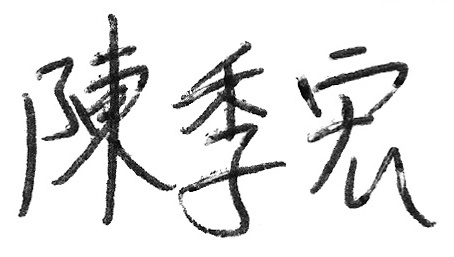 陳季宏